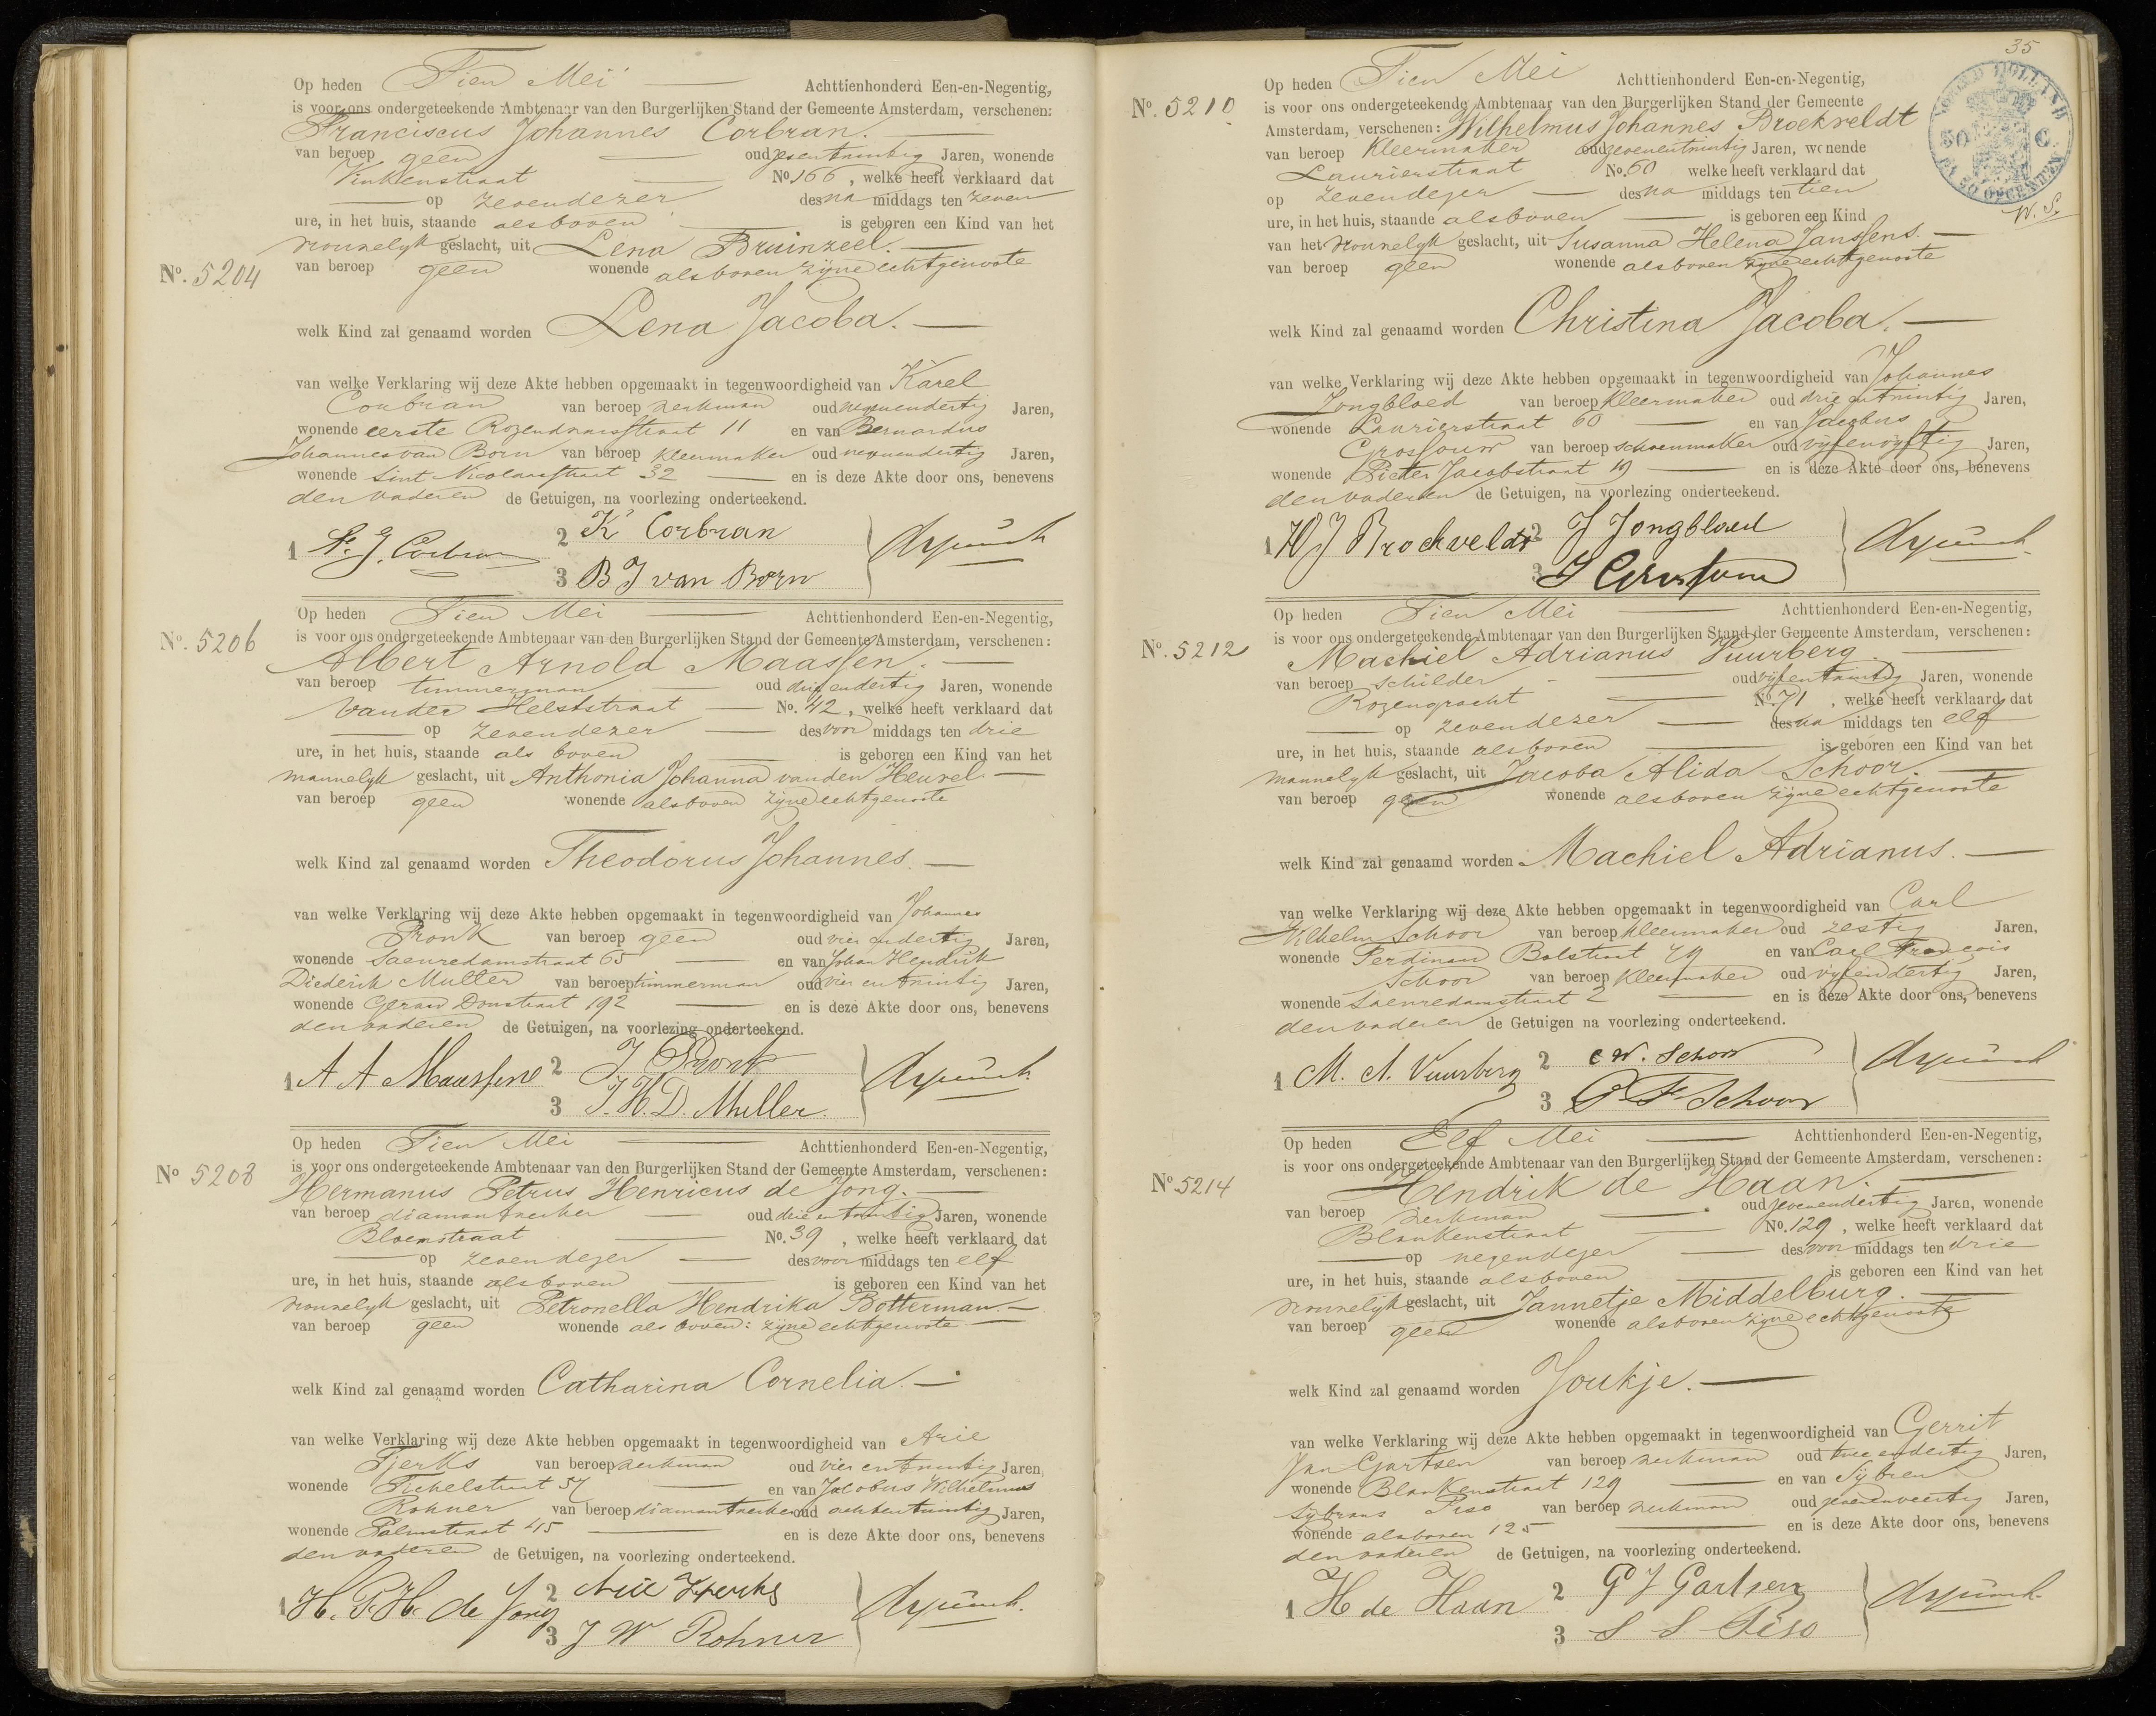 Op heden Tien Mei Achttienhonderd Een-en-Negentig,
is voor ons ondergeteekende Ambtenaar van den Burgerlijken Stand der Gemeente Amsterdam, verschenen:
Franciscus Johannes Corbran.
van beroep geen oud zesentwintig Jaren, wonende
Vinkenstraat No. 166, welke heeft verklaard dat
op zevendezer des na middags ten zeven
ure, in het huis, staande alsboven is geboren een Kind van het
vrouwelyk geslacht, uit Lena Bruinzeel.
van beroep geen wonende alsboven zijne echtgenoote
No. 5204
welk Kind zal genaamd worden Lena Jacoba.
van welke Verklaring wij deze Akte hebben opgemaakt in tegenwoordigheid van Karel
Corbran van beroep werkman oud negenendertig Jaren,
wonende eerste Rozendwarsstraat 11 en van Bernardus
Johannes van Born van beroep kleermaker oud negenendertig Jaren,
wonende Sint Nicolaasstraat 32 en is deze Akte door ons, benevens
den vader en de Getuigen, na voorlezing onderteekend.
1 F. J. Corbran 2 K Corbran
3 B J van Born
Op heden Tien Mei Achttienhonderd Een-en-Negentig,
No. 5206 is voor ons ondergeteekende Ambtenaar van den Burgerlijken Stand der Gemeente Amsterdam, verschenen:
Albert Arnold Maassen.
van beroep timmerman oud drie endertig Jaren, wonende
Vander Helststraat No. 42, welke heeft verklaard dat
op zevendezer des voor middags ten drie
ure, in het huis, staande als boven is geboren een Kind van het
mannelyk geslacht, uit Anthonia Johanna vanden Heuvel.
van beroep geen wonende alsboven zijne echtgenoote
welk Kind zal genaamd worden Theodorus Johannes.
van welke Verklaring wij deze Akte hebben opgemaakt in tegenwoordigheid van Johannes
Pronk van beroep geen oud vier endertig Jaren,
wonende Saenredamstraat 65 en van Johan Hendrik
Diederik Muller van beroep timmerman oud vier entwintig Jaren,
wonende Gerard Doustraat 192 en is deze Akte door ons, benevens
den vader en de Getuigen, na voorlezing onderteekend.
1 A A Maassen 2 J Pronk
3 J. H. D. Muller
Op heden Tien Mei Achttienhonderd Een-en-Negentig,
No 5208 is voor ons ondergeteekende Ambtenaar van den Burgerlijken Stand der Gemeente Amsterdam, verschenen:
Hermanus Petrus Henricus de Jong.
van beroep diamantwerker oud drie entwintig Jaren, wonende
Bloemstraat No. 39, welke heeft verklaard dat
op zevendezer des voor middags ten elf
ure, in het huis, staande alsboven is geboren een Kind van het
vrouwelyk geslacht, uit Petronella Hendrika Botterman.
van beroep geen wonende als boven: zijne echtgenoote
welk Kind zal genaamd worden Catharina Cornelia.
van welke Verklaring wij deze Akte hebben opgemaakt in tegenwoordigheid van Arie
Tjerks van beroep werkman oud vier entwintig Jaren,
wonende Tichelstraat 57 en van Jacobus Wilhelmus
Rohner van beroep diamantwerker oud achtentwintig Jaren,
wonende Palmstraat 45 en is deze Akte door ons, benevens
den vader en de Getuigen, na voorlezing onderteekend.
1 H. P. H. de Jong 2 Arie Tjerks
3 J W Rohner
35
Op heden Tien Mei Achttienhonderd Een-en-Negentig,
No. 5210 is voor ons ondergeteekende Ambtenaar van den Burgerlijken Stand der Gemeente
Amsterdam, verschenen: Wilhelmus Johannes Broekveldt
van beroep Kleermaker oud zevenentwintig Jaren, wonende
Laurierstraat No. 60 welke heeft verklaard dat
op zevendezer des na middags ten tien
ure, in het huis, staande alsboven is geboren een Kind
W. S.
van het vrouwelyk geslacht, uit Susanna Helena Janssens.
van beroep geen wonende alsboven zijne echtgenoote
welk Kind zal genaamd worden Christina Jacoba.
van welke Verklaring wij deze Akte hebben opgemaakt in tegenwoordigheid van Johannes
Jongbloed van beroep kleermaker oud drie entwintig Jaren,
wonende Laurierstraat 60 en van Jacobus
Grossouw van beroep schoenmaker oud vijfenvijftig Jaren,
wonende Pieter Jacobstraat 19 en is deze Akte door ons, benevens
den vader en de Getuigen, na voorlezing onderteekend.
1 W J Brockveldt 2 J Jongbloed
3 J Grossouw
Op heden Tien Mei Achttienhonderd Een-en-Negentig,
No. 5212 is voor ons ondergeteekende Ambtenaar van den Burgerlijken Stand der Gemeente Amsterdam, verschenen:
Machiel Adrianus Vuurberg.
van beroep schilder oud vijfentwintig Jaren, wonende
Rozengracht No. 71, welke heeft verklaard dat
op zevendezer des na middags ten elf
ure, in het huis, staande alsboven is geboren een Kind van het
mannelyk geslacht, uit Jacoba Alida Schoor.
van beroep geen wonende alsboven zijne echtgenoote
welk Kind zal genaamd worden Machiel Adrianus.
van welke Verklaring wij deze Akte hebben opgemaakt in tegenwoordigheid van Carl
Wilhelm Schoor van beroep kleermaker oud zestig Jaren,
wonende Ferdinand Bolstraat 49 en van Carl François
Schoor van beroep kleermaker oud vijfendertig Jaren,
wonende Saenredamstraat 2 en is deze Akte door ons, benevens
den vader en de Getuigen na voorlezing onderteekend.
1 M. A. Vuurberg 2 C W. Schoor
3 C. F. Schoor
Op heden Elf Mei Achttienhonderd Een-en-Negentig,
is voor ons ondergeteekende Ambtenaar van den Burgerlijken Stand der Gemeente Amsterdam, verschenen:
No. 5214 Hendrik de Haan.
van beroep werkman oud zevenendertig Jaren, wonende
Blankenstraat No. 129, welke heeft verklaard dat
op negendezer des voor middags ten drie
ure, in het huis, staande alsboven is geboren een Kind van het
vrouwelijk geslacht, uit Jannetje Middelburg.
van beroep geen wonende alsboven zijne echtgenoote
welk Kind zal genaamd worden Joukje.
van welke Verklaring wij deze Akte hebben opgemaakt in tegenwoordigheid van Gerrit
Jan Gartsen van beroep werkman oud twee endertig Jaren,
wonende Blankenstraat 129 en van Sijbren
Sijbrans Piso van beroep werkman oud zevenenveertig Jaren,
wonende alsboven 125 en is deze Akte door ons, benevens
den vader en de Getuigen, na voorlezing onderteekend.
1 H de Haan 2 G J Gartsen
3 S S Piso